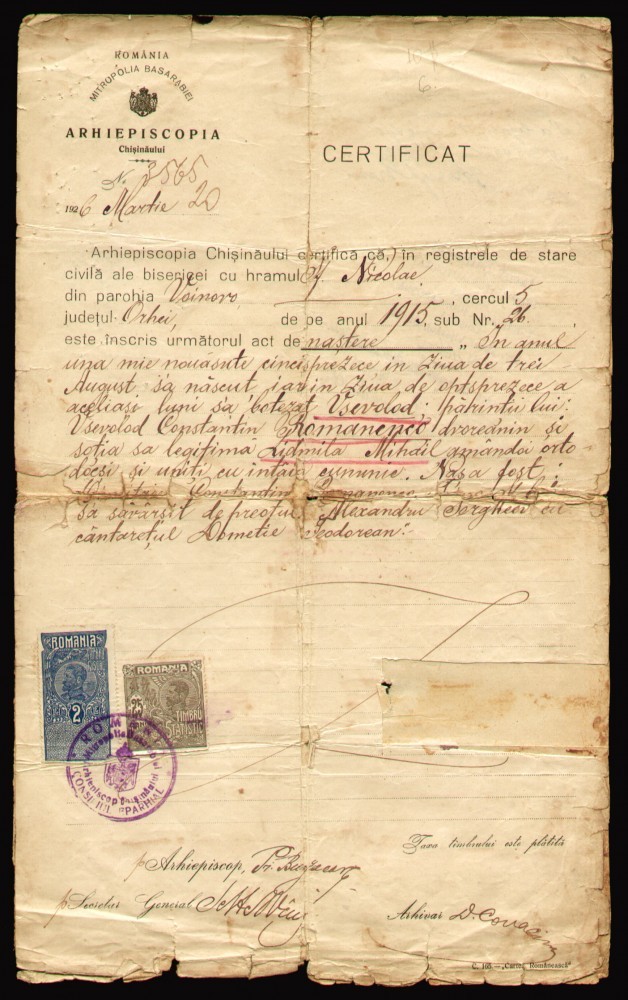 ROMÂNIA
MITROPOLIA BASARABIEI
ARHIEPISCOPIA
Chișinăului
N. 3565
1926 Martie 20
CERTIFICAT
Arhiepiscopia Chișinăului certifică că, în registrele de stare
civilă ale bisericei cu hramul Sf. Nicolae
din parohia Voinovo, cercul 5
județul Orhei, de pe anul 1915, sub Nr. 26
este înscris următorul act de naștere „In anul
una mie nouăsute cincisprezece in ziua de trei
August sa născut iar in ziua de optsprezece a
aceliași luni sa botezat Vsevolod; părintii lui:
Vsevolod Constantin Romanenco dvoreanin și
soția sa legitimă Lidmila Mihail amândoi orto
docsi si uniti cu întăia cununie. Nașa fost:
Constantin
sa săvârșit de preotul Alexandru Serghiev cu
cântarețul Dometie Teodorean".
ROMANIA
2
ROMANIA
25
TIMBRU
STATISTIC
CONSILIUL EPARHIAL
Taxa timbrului este plătită
p Arhiepiscop,
p Secretar General
Arhivar D.
C. 165 — „Cartea Românească"